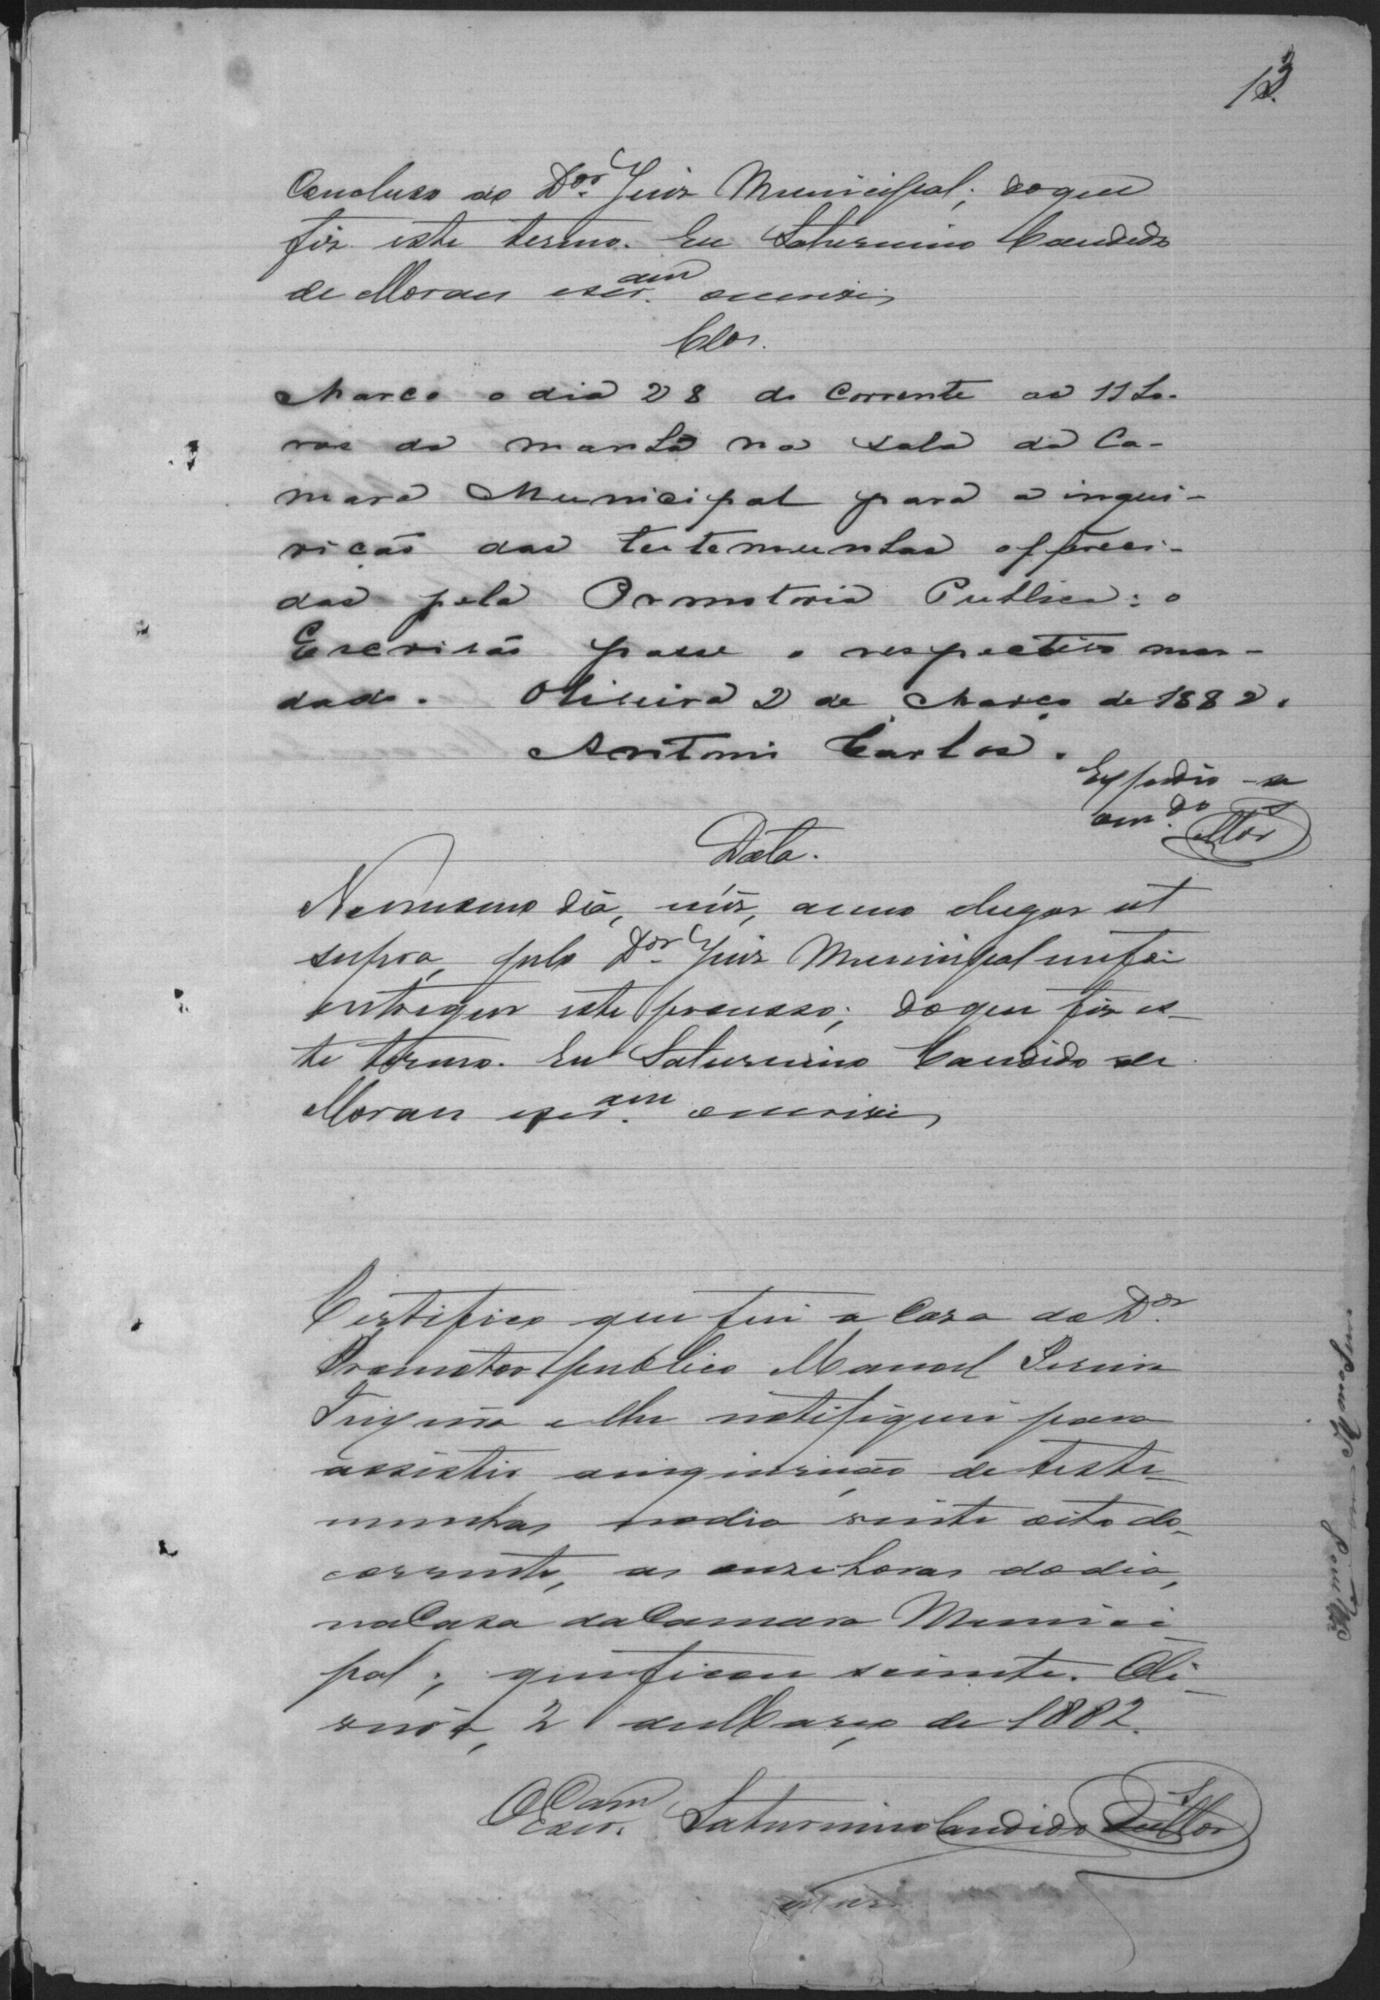 13
Concluso ao Dor. Juiz Municipal; do que
fiz este termo. Eu Saturnino Candido
de Moraes escram. o escrevi
Clos.
Marco o dia 28 do corrente as 11 ho-
ras da manhã na sala da Ca-
mara Municipal para a inqui-
rição das testemunhas offereci-
das pela Promotoria Publica: o
Escrivão passe o respectivo man-
dado. Oliveira 2 de Março de 1882.
Antonio Carlos.
Expedio-se
o mdo.
Data.
No mesmo dia, mês, anno e lugar ut
supra, pelo Dor. Juiz Municipal me foi
entregue este processo; do que fiz es-
te termo. Eu Saturnino Candido de
Moraes escram. o escrevi
Certifico que fui a casa do Dor.
Promotor publico Manoel Pereira
Teixeira e lhe notifiquei para
assistir a inquirição de teste-
munhas no dia vinte oito do
corrente, as onze horas do dia,
na Casa da Camara Munici-
pal; que ficou sciente. Oli-
veira, 2 de Março de 1882.
O Escram. Saturnino Candido de Mor